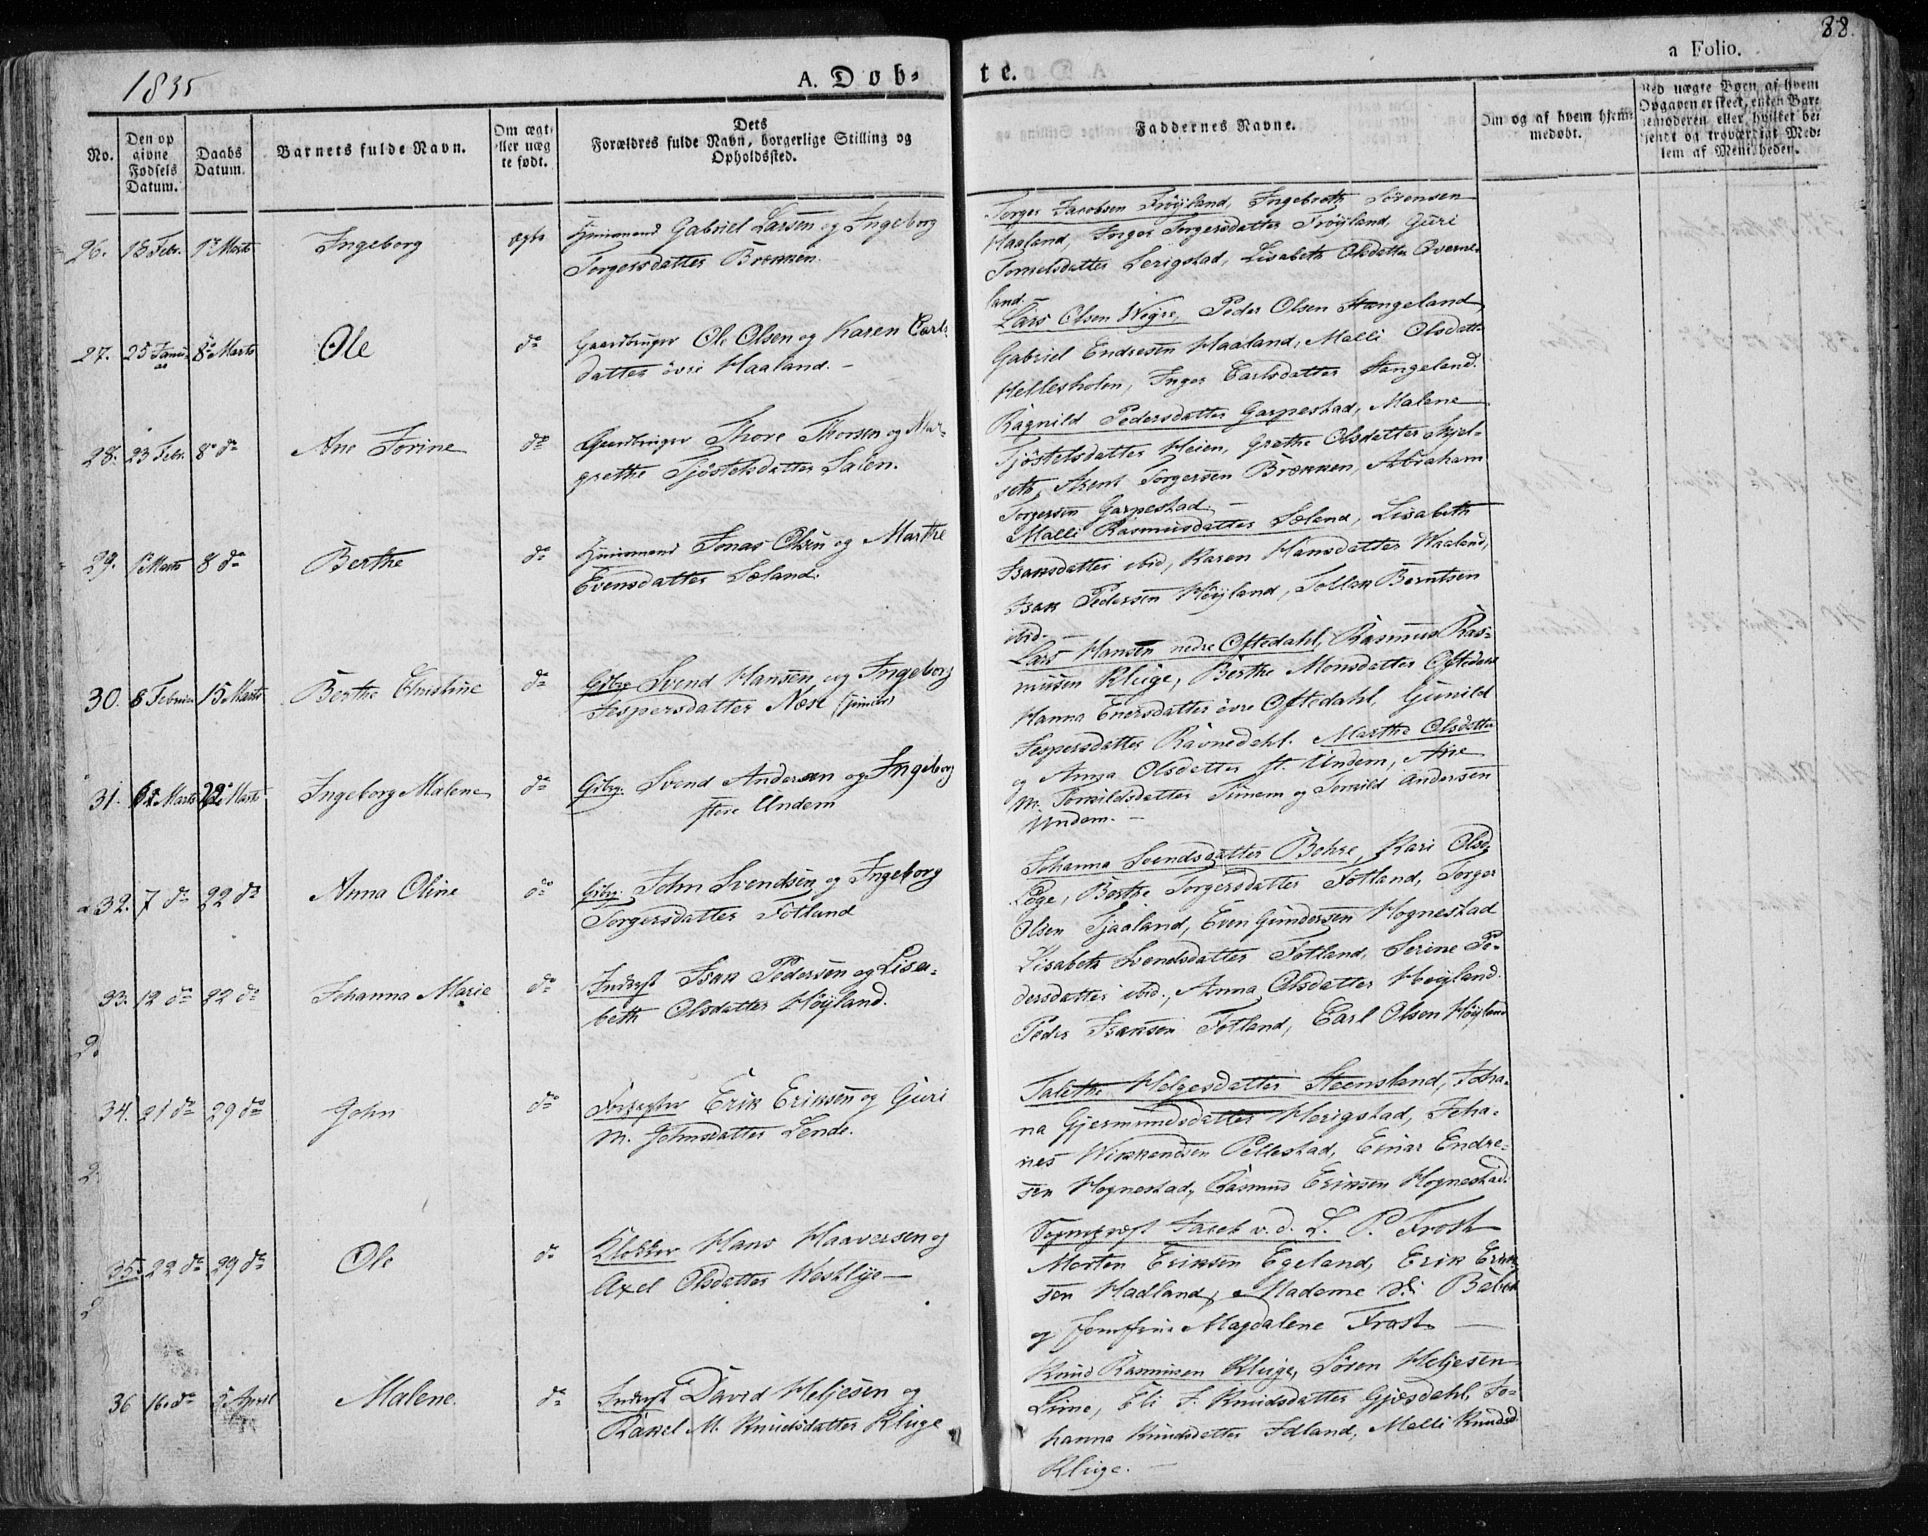 1835
A. Dob-
te.
88.
a Folio.
No.
Den op
givne
Fødsels
Datum.
Daabs
Datum.
Barnets fulde Navn.
Om ægt-
eller uæg
te født.
Dets
Forældres fulde Navn, borgerlige Stilling og
Opholdssted.
Faddernes Navne.
Om og af hvem hjem-
medøbt.
Ved uægte Børn, af hvem
Opgaven er skeet, enten Bar-
nemoderen eller hvilket bei
kjendt og troværdigt Med-
lem af Menigheden.
26. 18 Febr. 1ste Marts Ingeborg ægte Huusmand Gabriel Larsen og Ingeborg
Torgersdatter Brekken.
Torger Jacobsen Frøyland, Ingebreth Sørensen
Haaland, Inger Torgersdatter Frøyland, Guri
Tonnesdatter Serigstad, Lisabeth Olsdatter Qverne-
land.
27. 25 Janu- 8de Marts Ole do Gaardbruger Ole Olsen og Karen Carls
ar
datter övri Haaland.
Lars Olsen Weyre, Peder Olsen Stangeland
Gabriel Endresen Haaland, Malli Olsdatter
Hellesholen, Inger Carlsdatter Stangeland.
28. 23 Febr. 8 do Ane Torine do Gaardbruger Thore Thorsen og Mar-
grethe Tjöstelsdatter Salen.
Ragnild Pedersdatter Garpestad, Malene
Tjöstelsdatter Heien, Grethe Olsdatter Skjel-
seth, Arent Torgersen Brekken, Abraham
Torgersen Garpestad.
29. 1 Marts 8 do Berthe do Huusmand Jonas Olsen og Marthe
Evensdatter Sæland.
Malli Rasmusdatter Sæland, Lisabeth
Isaksdatter ibid, Karen Hansdatter Haaland,
Isak Pedersen Höyland, Tollak Berntsen
ibid.
30. 8 Februar 15 Marts Berthe Christine do Grbrg. Svend Hansen og Ingeborg
Jespersdatter Næse (junior)
Lars Hansen nedre Oftedahl, Rasmus Ras-
mussen Kluge, Berthe Monsdatter Oftedahl
Hanna Enersdatter övre Oftedahl, Gunild
Jespersdatter Ravnedahl.
31. Marts 22 Marts Ingeborg Malene do Grbrg. Svend Andersen og Ingeborg
store Undem
Marthe Olsdatter
og Anna Olsdatter st. Undem, Ane
M. Torkildsdatter Simem og Torkild Andersen
Undem.
32. 7 do 22 do Anna Oline do Grbrg. John Svendsen og Ingeborg
Torgersdatter Fotland
Johanna Svendsdatter Bohre, Kari Olsd.
Löge, Berthe Torgersdatter Fotland, Torger
Olsen Tjaaland, Even Gundersen Hognestad
33. 12 do 22 do Johanna Marie do Inderst Isak Pedersen og Lisa-
beth Olsdatter Höyland.
Lisabeth Svendsdatter Fotland, Serine Pe-
dersdatter ibid., Anna Olsdatter Höyland.
Peder Isaksen Fotland, Carl Olsen Höyland
34. 21 do 29 do John do Forpagter Erik Eriksen og Guri
M. Johnsdatter Lende.
Talethe Helgesdatter Steensland, Joha-
na Gjermundsdatter Herigstad, Joha-
nes Wikkendsen Pellestad, Einar Endre-
sen Hognestad, Rasmus Eriksen Hognestad.
35. 22 do 29 do Ole do Klokker Hans Haaversen og
Axel Olsdatter Westlye
Sogneprest Jacob v. d. L. P. Frost
Morten Eriksen Egeland, Erik Erik-
sen Hadland, Madame
og Jomfrue Magdalene Frost
36 16. do 5 April Malene. do Inderst David Heljesen og
Rakel M. Knudsdatter Kluge
Knud Rasmusen Kluge, Sören Heljesen
Lime, Eli J. Knudsdatter Gjesdahl, Jo-
hanna Knudsdatter Idland, Malli Knudsd.
Kluge.